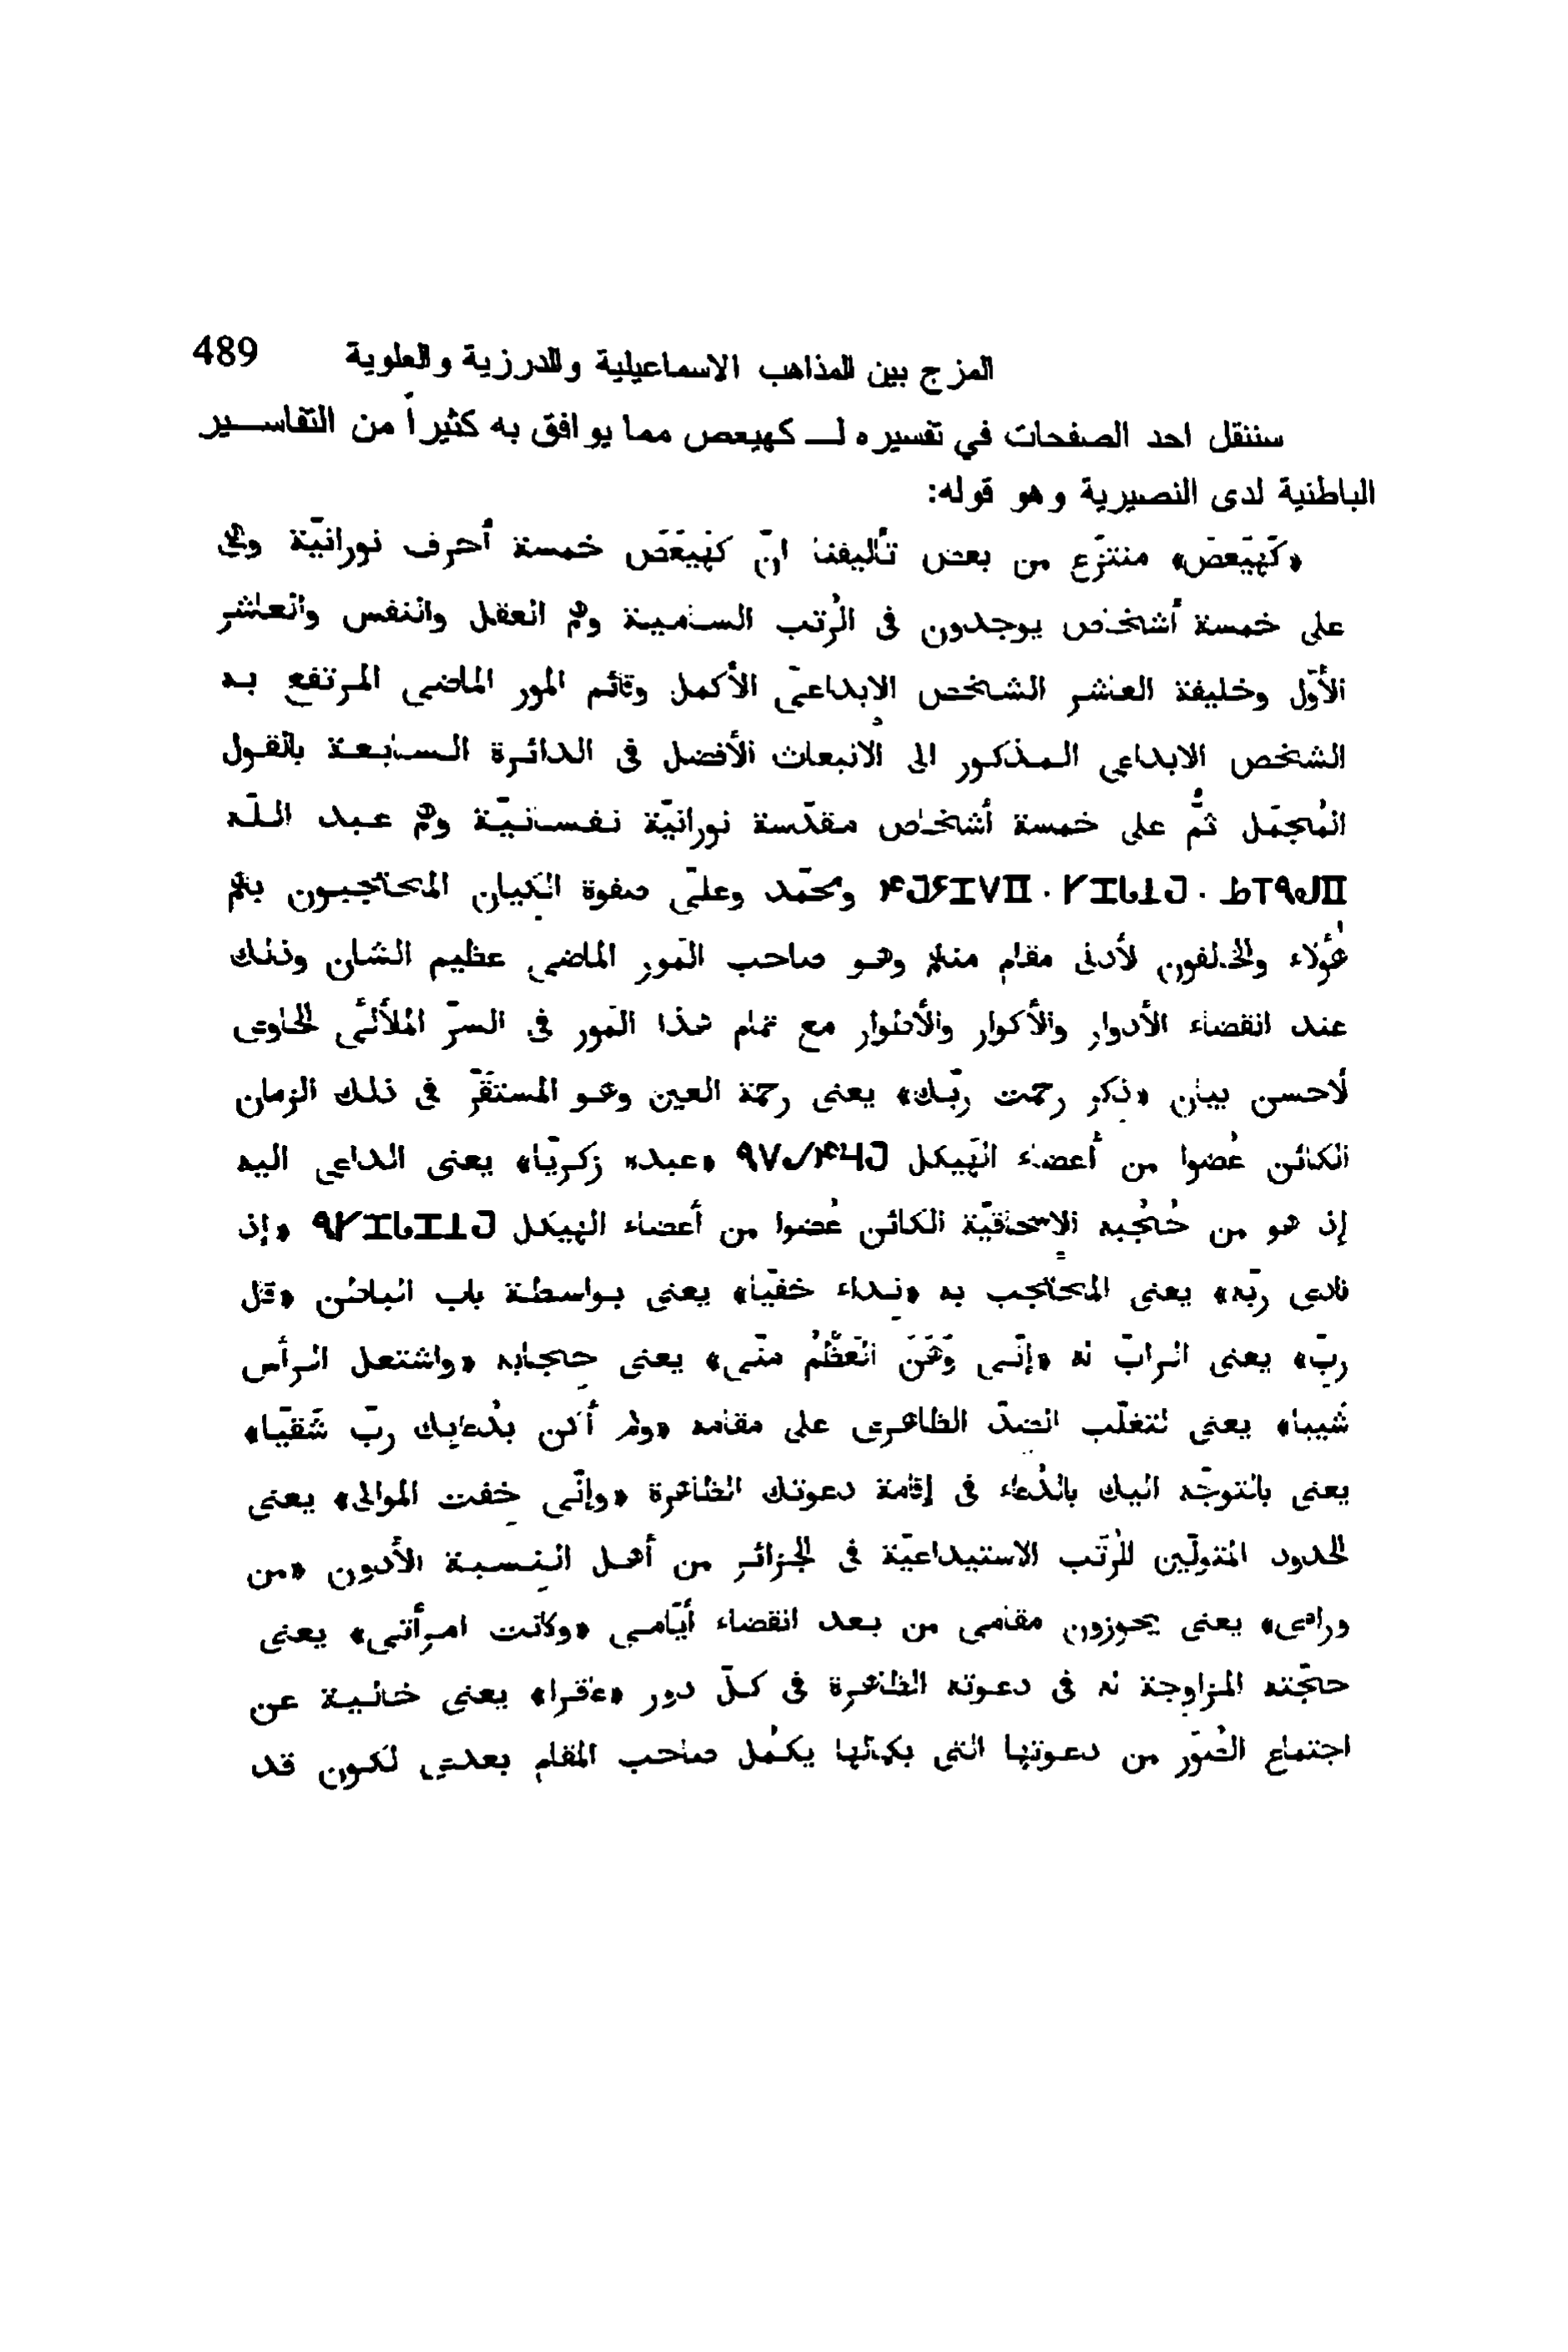 المزج بين المذاهب الاسماعيلية والدرزية والعلوية 489
سننقل احد الصفحات في تفسيره لـ كهيعص مما يوافق به كثيراً من التفاسير
الباطنية لدى النصيرية وهو قوله:
«كَهيَعصَ» منتزَع من بعض تأليفنا انّ كَهيَعَصَ خمسة أحرف نورانيّة وهى
على خمسة أشخاص يوجدون فى الرُتب السامية وهم العقل والنفس والعاشر
الأوّل وخليفة العاشر الشخص الإبداعىّ الأكمل وقائم الدور الماضى المرتفع به
الشخص الابداعى المذكور الى الانبعاث الأفضل فى الدائرة السابعة بالقول
المُجمَل ثمّ على خمسة أشخاص مقدّسة نورانيّة نفسانيّة وهم عبد اللّه
ومحمّد وعلىّ صفوة الكيان المحتجبون بهم
هؤلاء والخالفون لأدنى مقام منهم وهو صاحب الدَور الماضى عظيم الشان وذلك
عند انقضاء الأدوار والأكوار والأطوار مع تمام هذا الدَور فى السرّ المُلألئ الحاوى
لأحسن بيان «ذِكر رحمت ربّك» يعنى رحمة العين وهو المستقَرّ فى ذلك الزمان
الكائن عُضوا من أعضاء الهَيكل «عبده زكريّا» يعنى الداعى اليه
إذ هو من حُجُبه الإسحاقيّة الكائن عُضوا من أعضاء الهيكل «إذ
نادى ربّه» يعنى المحتجب به «نِداء خفيّا» يعنى بواسطة باب الباطن «قال
ربِّ» يعنى الرابّ له «إنّى وَهَنَ العَظْمُ منّى» يعنى حِجابه «واشتعل الرأس
شَيبا» يعنى لتغلّب الضدّ الظاهرى على مقامه «ولم أكن بدُعائِك ربّ شَقيّا»
يعنى بالتوجّه اليك بالدُعاء فى إقامة دعوتك الظاهرة «وإنّى خِفت الموالى» يعنى
الحدود المتولّين للرُتَب الاستيداعيّة فى الجزائر من أهل النِسبة الأدون «من
ورائى» يعنى يحوزون مقامى من بعد انقضاء أيّامى «وكانت امرأتى» يعنى
حجّته المزاوِجة له فى دعوته الظاهرة فى كلّ دور «عاقرا» يعنى خالية عن
اجتماع الصُوَر من دعوتها التى بكمالها يكمُل صاحب المقام بعدى لكون قد